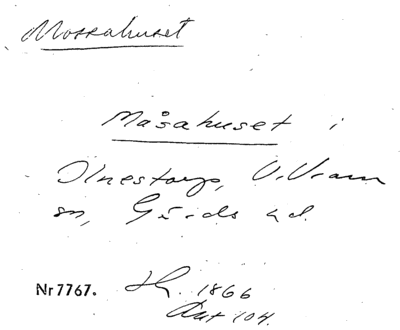 Mossahuset
Måsahuset i
Ilnestorp, V. Vram
sn, Gärds hd.
Nr 7767. Hf. 1866
Aut 104.